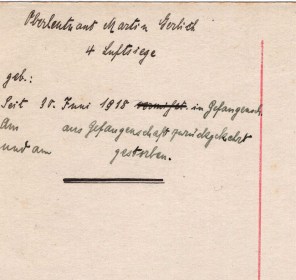 Oberleutnant Martin Gerlich
4 Luftsiege
geb.:
Seit 30. Juni 1918 vermisst in Gefangensch.
Am aus Gefangenschaft zurückgekehrt
und am gestorben.